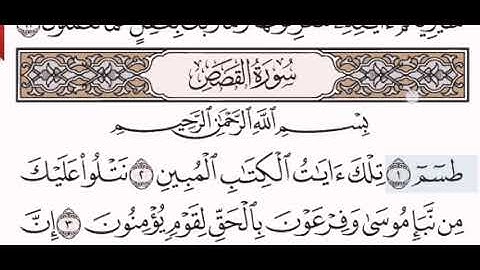 سُورَةُ القَصَصِ
بِسْمِ اللَّهِ الرَّحْمَٰنِ الرَّحِيمِ
طسٓمٓ ١ تِلْكَ ءَايَٰتُ الْكِتَٰبِ الْمُبِينِ ٢ نَتْلُوا۟ عَلَيْكَ
مِن نَّبَإِ مُوسَىٰ وَفِرْعَوْنَ بِالْحَقِّ لِقَوْمٍ يُؤْمِنُونَ ٣ إِنَّ